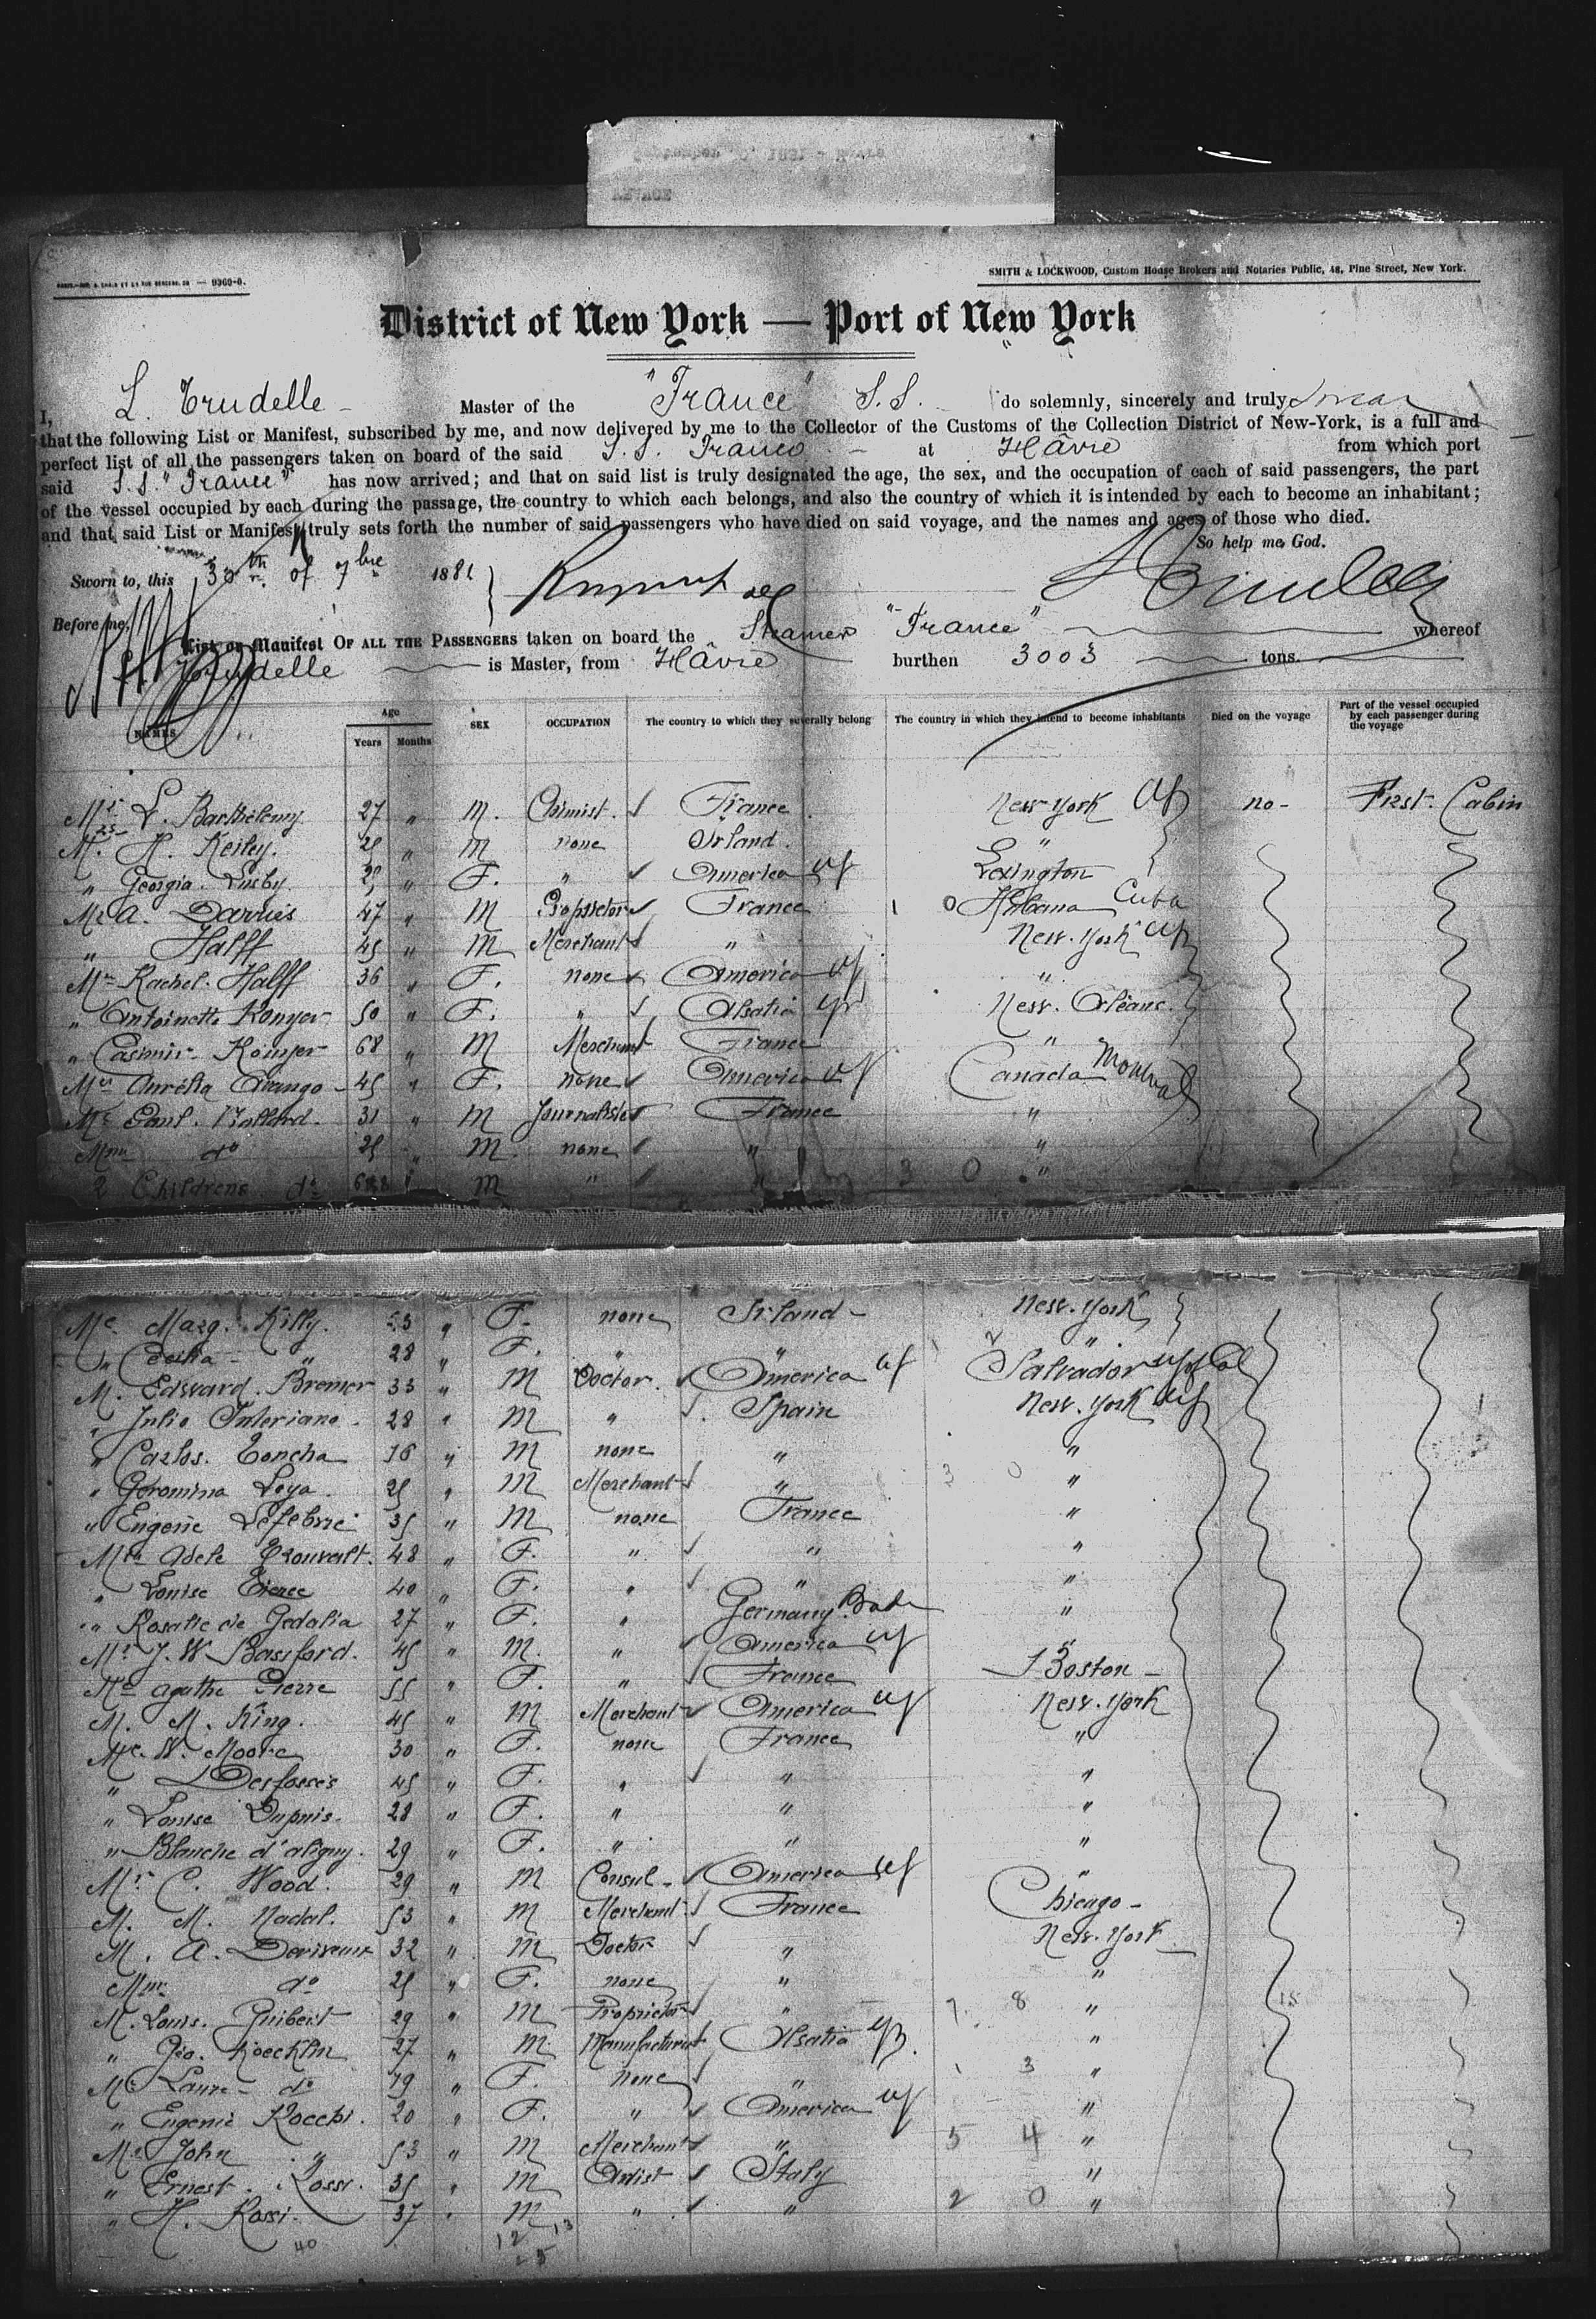 SMITH & LOCKWOOD, Custom House Brokers and Notaries Public, 48, Pine Street, New York.
— 9360-0.
District of New York — Port of New York
I, L. Trudelle Master of the "France" S.S. do solemnly, sincerely and truly swear
that the following List or Manifest, subscribed by me, and now delivered by me to the Collector of the Customs of the Collection District of New-York, is a full and
perfect list of all the passengers taken on board of the said S.S. France at Hâvre from which port
said S.S. "France" has now arrived; and that on said list is truly designated the age, the sex, and the occupation of each of said passengers, the part
of the vessel occupied by each during the passage, the country to which each belongs, and also the country of which it is intended by each to become an inhabitant;
and that said List or Manifest truly sets forth the number of said passengers who have died on said voyage, and the names and ages of those who died.
So help me God.
Sworn to, this 30th of 7bre 1881
Before me,
List or Manifest OF ALL THE PASSENGERS taken on board the Steamer "France" whereof
Trudelle is Master, from Hâvre burthen 3003 tons.
NAMES Age Years Months SEX OCCUPATION The country to which they severally belong The country in which they intend to become inhabitants Died on the voyage Part of the vessel occupied by each passenger during the voyage
Mr L. Barthelemy 27 " M. Chimist. France New York no- First. Cabin
M. H. Keiley. " M none Irland. "
" Georgia. Lusby. " F. " America Lexington
Mr A. Darriés 47 " M Proprietor France Habana Cuba
" Halff 45 " M Merchant " New-York
Me Rachel. Halff 36 " F. none America "
" Antoinette Konyer 50 " F. " Alsatia New. Orléans.
" Casimir Konyer 68 " M Merchant France "
Me Aurélia Arango 45 " F. none America Canada Montreal
Mr Paul. 31 " M Journaliste France "
Mme do 25 " M. none " "
2 Childrens do " M " " "
Me Marg. Killy. 53 " F. none Irland New-York
" Cecilia " 28 " F. " " "
M. Edward. Bremer 33 " M Doctor. America Salvador
" Julio Interiano 28 " M " Spain New-York
" Carlos. Concha 16 " M none " "
" Geromina Loya. 25 " M Merchant " "
" Eugene Lefebvre 35 " M none France "
Me Adele 48 " F. " " "
" Louise Pierre 40 " F. " " "
" Rosalie de Gedalia 27 " F. " Germany Bade "
Mr J. W Bassford. 45 " M. " America "
Me Agathe Pierre 55 " F. " France Boston
M. M. King. 45 " M Merchant America New-York
Me W. Moore 30 " F. none France "
" Desfossés 45 " F. " " "
" Louise Dupuis. 28 " F. " " "
" Blanche d'aligny. 29 " F. " " "
Mr C. Wood. 29 " M Consul America "
M. M. Nadal. 53 " M Merchant France Chicago
M. A. 32 " M Doctor " New-York
Mme do 25 " F. none " "
M. Louis. Guibert 29 " M Proprietor " "
" Geo. Koecklin 27 " M Manufacturist Alsatia "
Me Laure do 19 " F. none " "
" Eugenie Rocchi. 20 " F. " America "
Mr John " 53 " M Merchant " "
" Ernest. Rossi. 35 " M Artist Italy "
" H. Rossi. 37 " M " " "
40